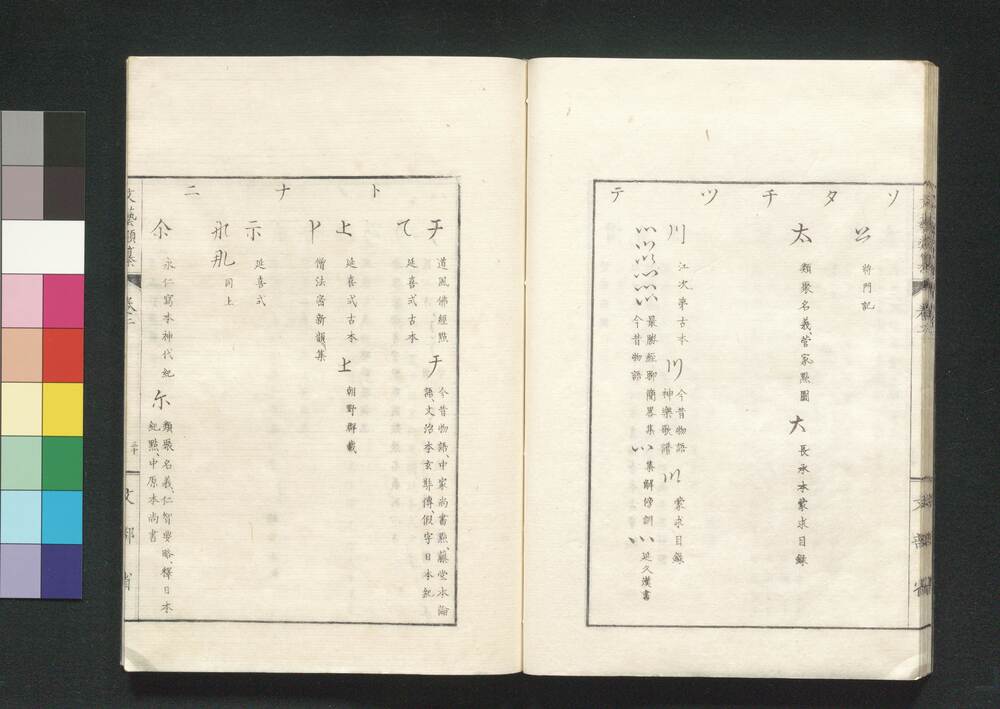 ソ タ チ ツ テ
将門記
太 類聚名義、菅家點圖 大 長承本蒙求目録
川 江次第古本 川 今昔物語 神樂歌譜 川 蒙求目録
最勝經聊簡畧集 集解傍訓 延久漢書
今昔物語
ト ナ ニ
チ 道風佛經點 チ 今昔物語、中家尚書點、藤堂本論
語、文治本玄奘傳、假字日本紀
て 延喜式古本
上 延喜式古本 上 朝野群載
卜 僧法審新韻集
示 延喜式
同上
尒 永仁寫本神代紀 尓 類聚名義、仁智要略、釋日本
紀點、中原本尚書
文藝類纂 卷二
二十
文部省